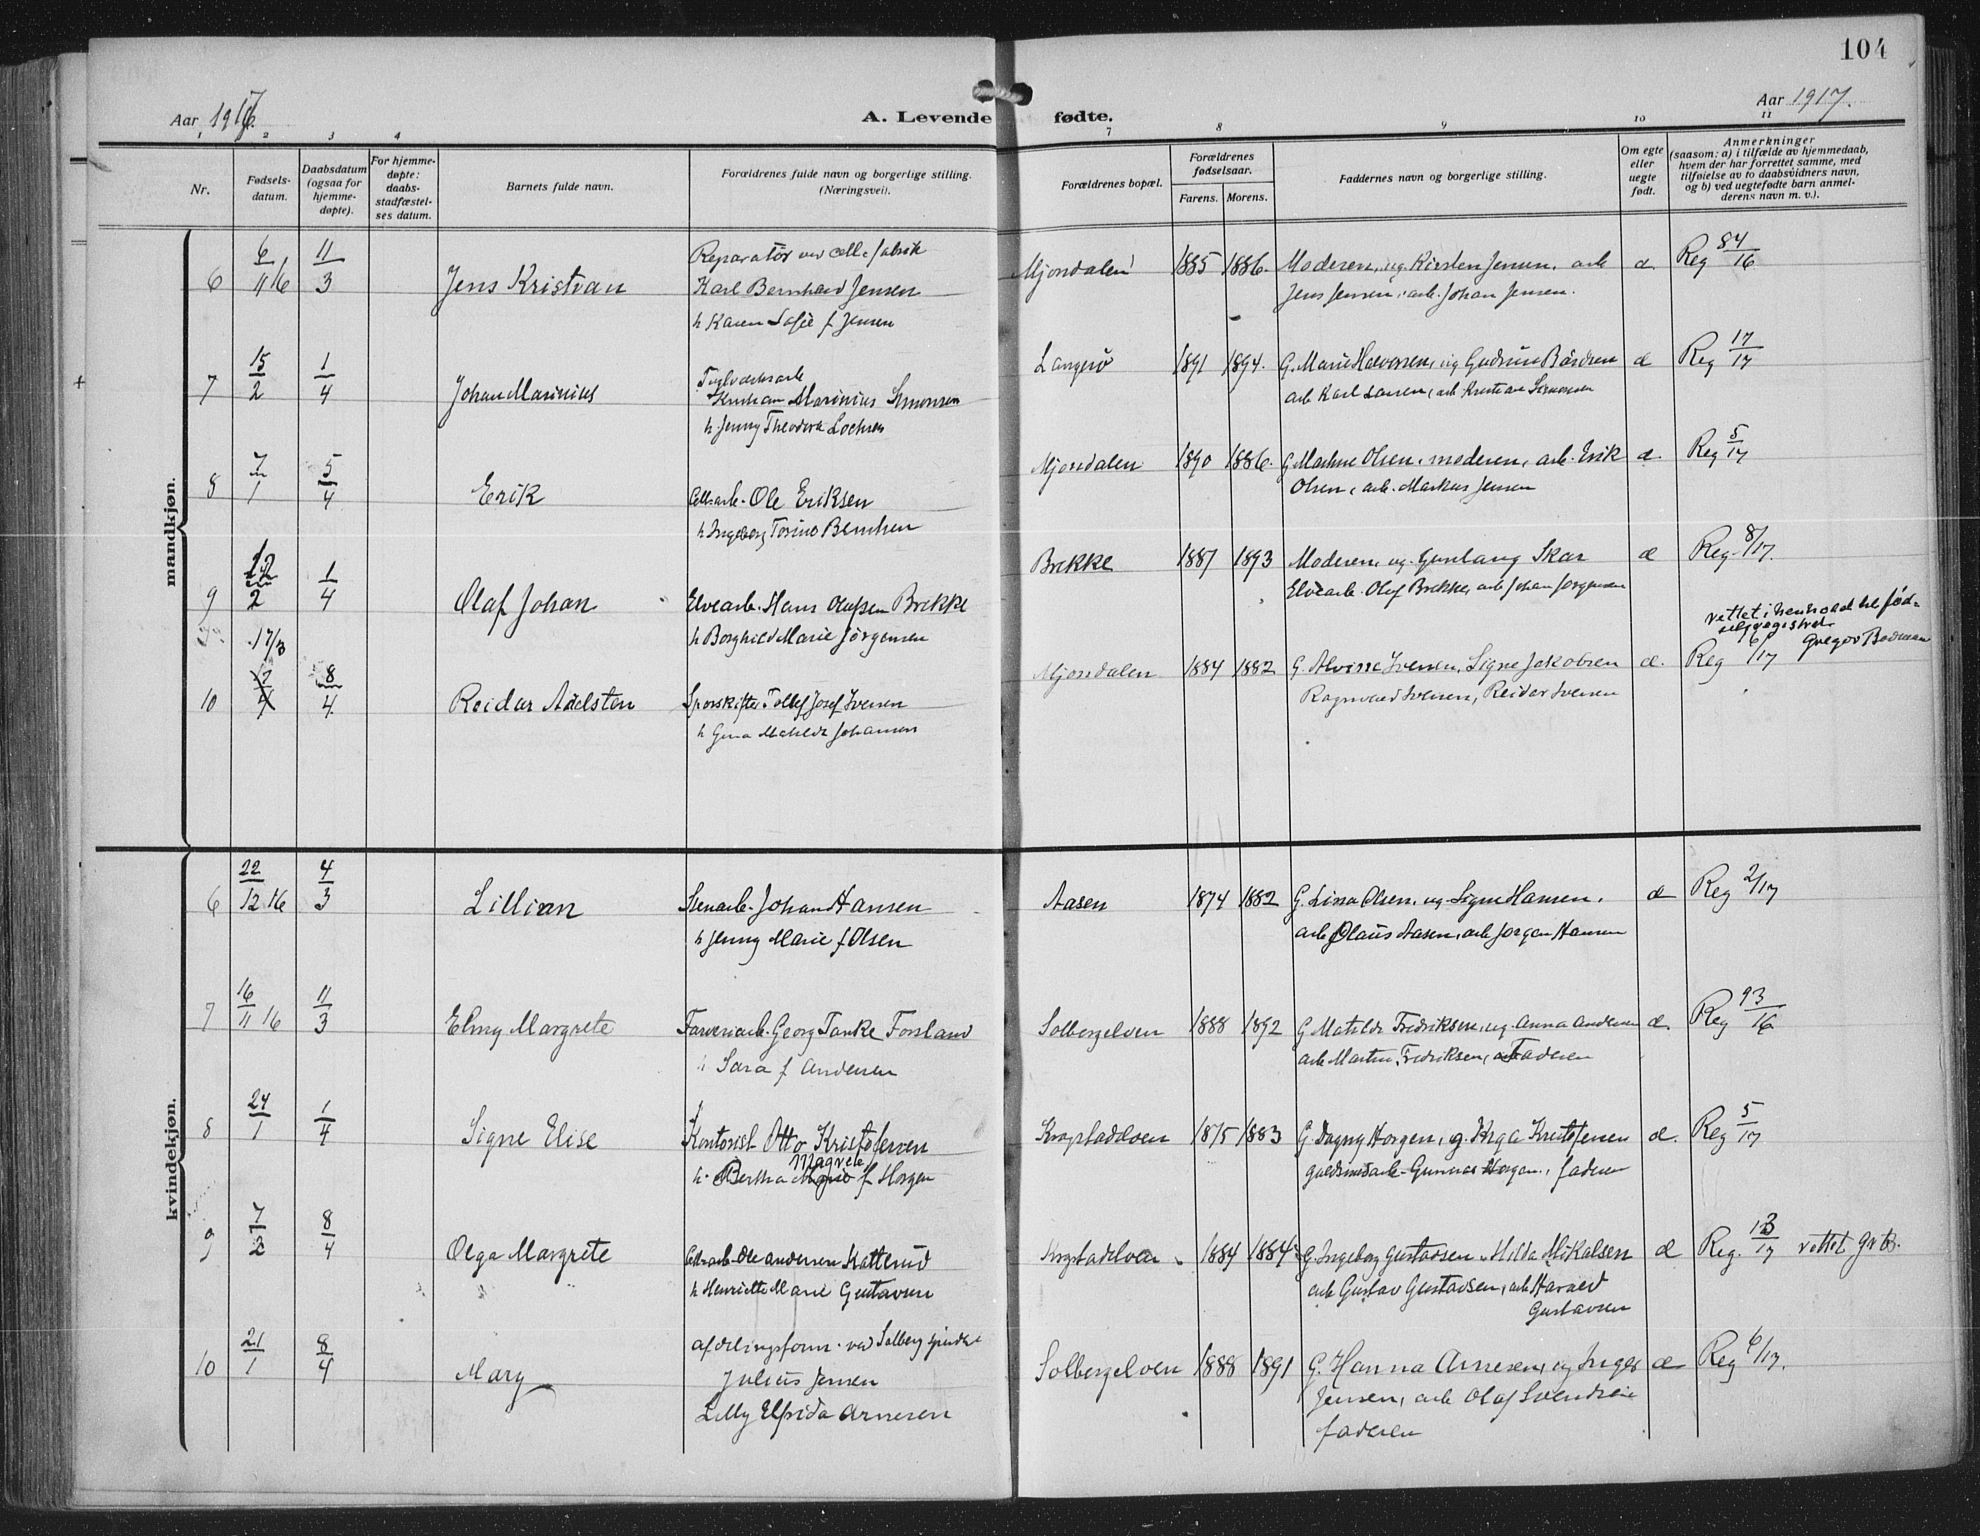 104
Aar 1917.
A. Levende fødte.
Aar 1917.
1 2 3 4 7 8 9 10 11
Nr.
Fødsels-
datum.
Daabsdatum
(ogsaa for
hjemme-
døpte).
For hjemme-
døpte:
daabs-
stadfæstel-
ses datum.
Barnets fulde navn.
Forældrenes fulde navn og borgerlige stilling.
(Næringsvei).
Forældrenes bopæl.
Forældrenes
fødselsaar.
Farens. Morens.
Faddernes navn og borgerlige stilling.
Om egte
eller
uegte
født.
Anmerkninger
(saasom: a) i tilfælde av hjemmedaab,
hvem der har forrettet samme, med
tilføielse av to daabsvidners navn,
og b) ved uegtefødte barn anmel-
derens navn m. v.).
mandkjøn.
6 6/11 16 11/3 Jens Kristian
Reparatør ved cell. fabrik
Karl Bernhard Jensen
h Karen Sofie f Jensen
Mjøndalen 1885 1886.
Moderen, ug Kirsten Jensen, arb
Jens Jensen, arb. Johan Jensen.
Reg 84/16
7 15/2 1/4 Johan Marinius
Marinius Simonsen
h. Jenny Theodora
Langerø 1891 1894.
G. Marie Halvorsen, ug Gudrun
arb Karl Larsen, arb Kristian Simonsen
Reg 17/17
8 7/1 5/4 Erik
Cellarb. Ole Eriksen
h Ingeborg
Mjøndalen 1890 1886.
G Olsen, moderen, arb. Erik
Olsen, arb. Markus Jensen
Reg 5/17
9 12/2 1/4 Olaf Johan
Elvearb. Hans Olafsen Brekke
h Borghild Marie Jørgensen
Brekke 1887 1893
Moderen, ug. Gunlaug Skar
Elvearb. Olaf Brekke, arb Johan Jørgensen
Reg. 8/17.
17/3
10 8/4 Reidar Adelsten
Sporskifter Tollef Josef Iversen
h Gina Matilde Johansen
Mjøndalen 1884 1882
G. Iversen, Signe Jakobsen
Ragnvald Iversen, Reidar Iversen
rettet i henhold til fød-
selsregistret
Reg 6/17
kvindekjøn.
6 22/12 16 4/3 Lillian
Stenarb. Johan Hansen
h Jenny Marie f Olsen
Aasen 1874 1882
G. Lina Olsen, ug Signe Hansen.
arb Olaus Aasen, arb Jørgen Hansen
Reg 2/17
7 16/11 16 11/3 Elny Margrete
Farveriarb. Georg Tanke Forsland
h Sara f Andersen
Solbergelven 1888 1892
G Matilde Fredriksen, ug. Anna Andersen
arb Martin Fredriksen, Faderen
Reg 93/16
8 24/1 1/4 Signe Elise
Kontorist Otto Kristofersen
h. Bertha Magrete f Horgen
Krogstadelven 1875 1883
G Dagny Horgen, g. Kristofersen
guldsmedarb. Gunnar Horgen, faderen
Reg 5/17
9 7/2 8/4 Olga Margrete
Cellarb Ole Andersen Katterud
h Henriette Marie Gustavsen
Krogstadelven 1884 1884
G Ingeborg Gustavsen, Milda Mikalsen
arb Gustav Gustavsen, arb Harald
Gustavsen
Reg. 13/17 rettet
10 21/1 8/4 Mary
afdelingsform. ved Solberg spinderi
Julius Jensen
Lilly Elfrida Arnesen
Solbergelven 1888 1891
G. Hanna Arnesen, ug Inger
Jensen, arb Olaf Svendsen
faderen
Reg 6/17.